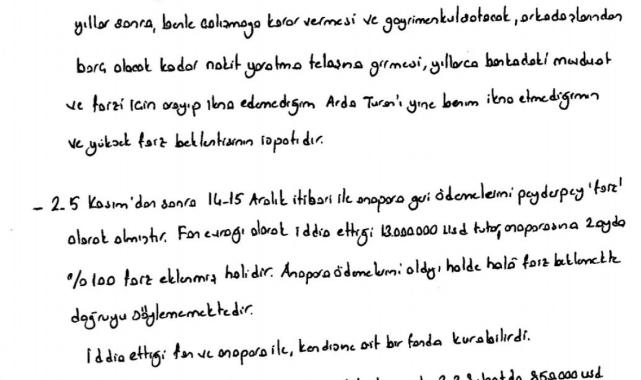 yıllar sonra, benle çalışmaya karar vermesi ve gayrimenkul satacak, arkadaşlarından
borç alacak kadar nakit yaratma telaşına girmesi, yıllarca bankadaki mevduat
ve farzi için arayıp ikna edemediğim Arda Turan'ı yine benim ikna etmediğimin
ve yüksek faiz beklentisinin ispatıdır.
- 2.5 Kasım'dan sonra 14-15 Aralık itibari ile anapara geri ödemelerini peyderpey 'faiz'
olarak almıştır. Fon evrağı olarak iddia ettiği 13.000.000 usd tutar, anaparasına 2 ayda
%100 faiz eklenmiş halidir. Anapara ödemelerini aldığı halde halâ faiz beklemekte
doğruyu söylememektedir.
iddia ettiği fon ve anapara ile, kendisine ait bir fonda kurabilirdi.
850.000 usd